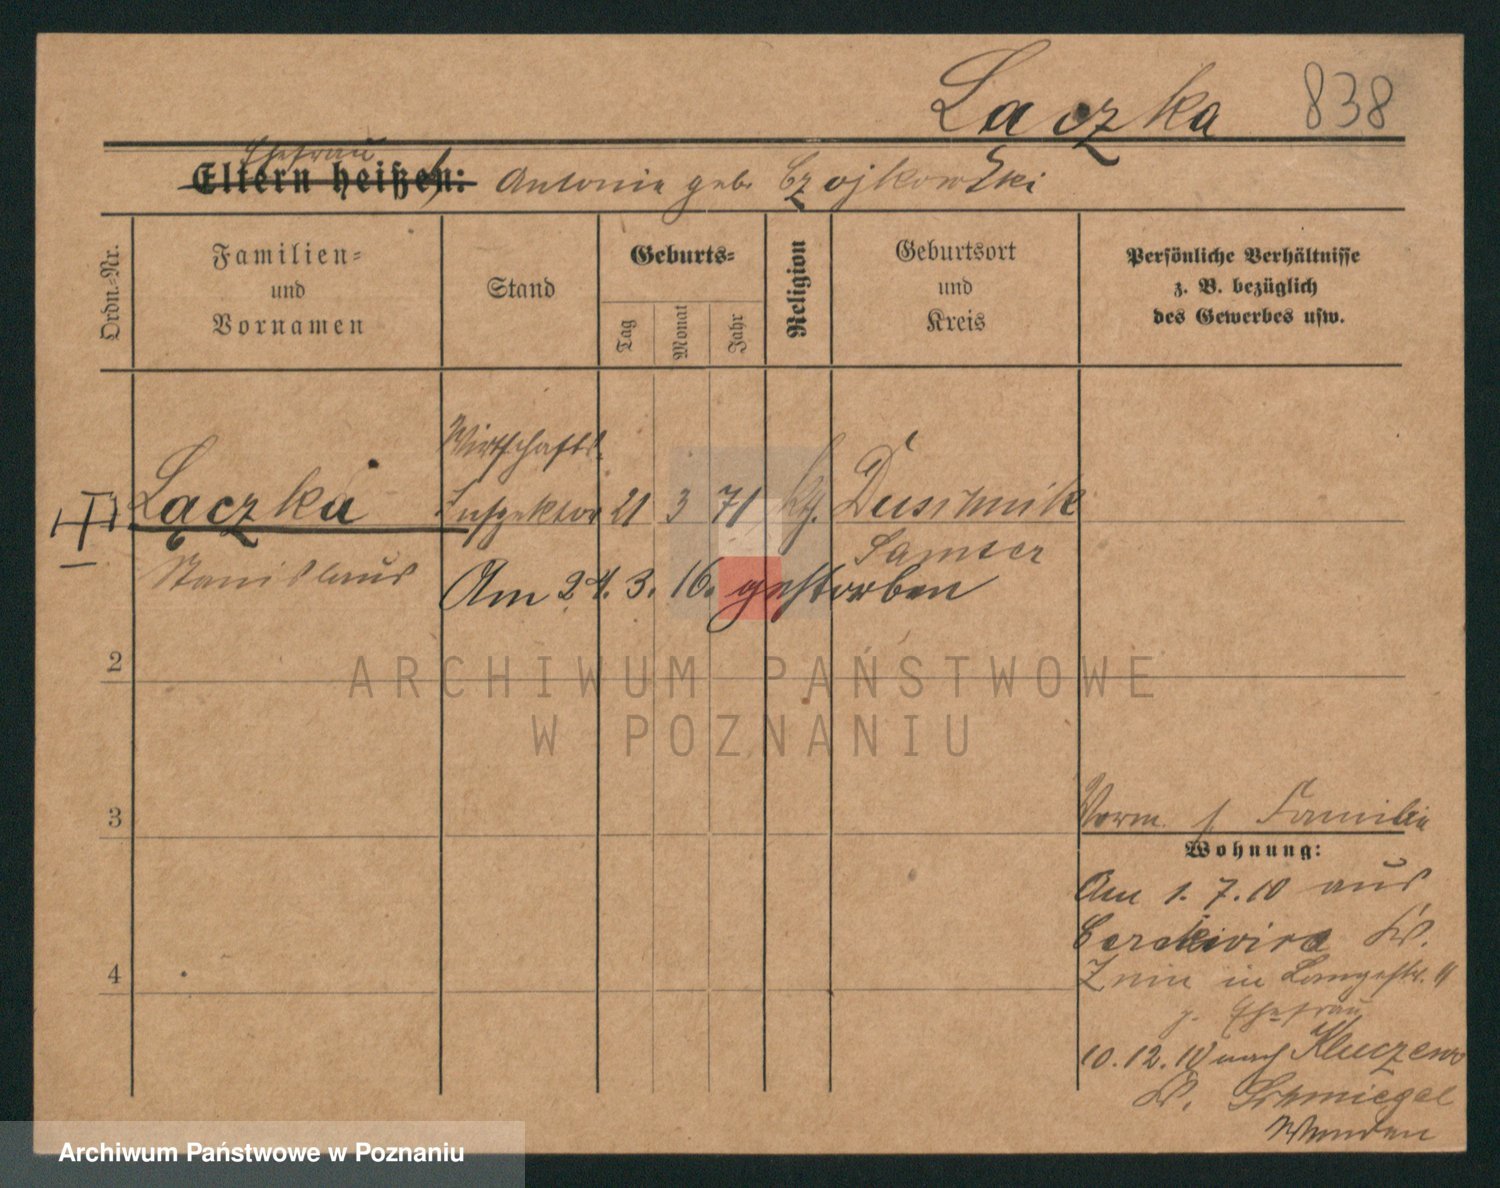 Laczka 838
Ehefrau
Eltern heißen: Antonie geb. Czojkowski
Ordn.-Nr.
Familien-
und
Vornamen
Stand
Geburts-
Tag
Monat
Jahr
Religion
Geburtsort
und
Kreis
Persönliche Verhältnisse
z. B. bezüglich
des Gewerbes usw.
Wirtschafts-
Lączka Inspektor 21 3 71 kth. Duschnik
Stanislaus Samter
Am 24. 3. 16. gestorben
2
3
4
Familie
Wohnung:
Am 1. 7. 10 aus
Kr.
Znin in Langestr. 11
Ehefrau
10. 12. 10 nach Kluczewo
Kr. Schmiegel
ARCHIWUM PAŃSTWOWE
W POZNANIU
Archiwum Państwowe w Poznaniu